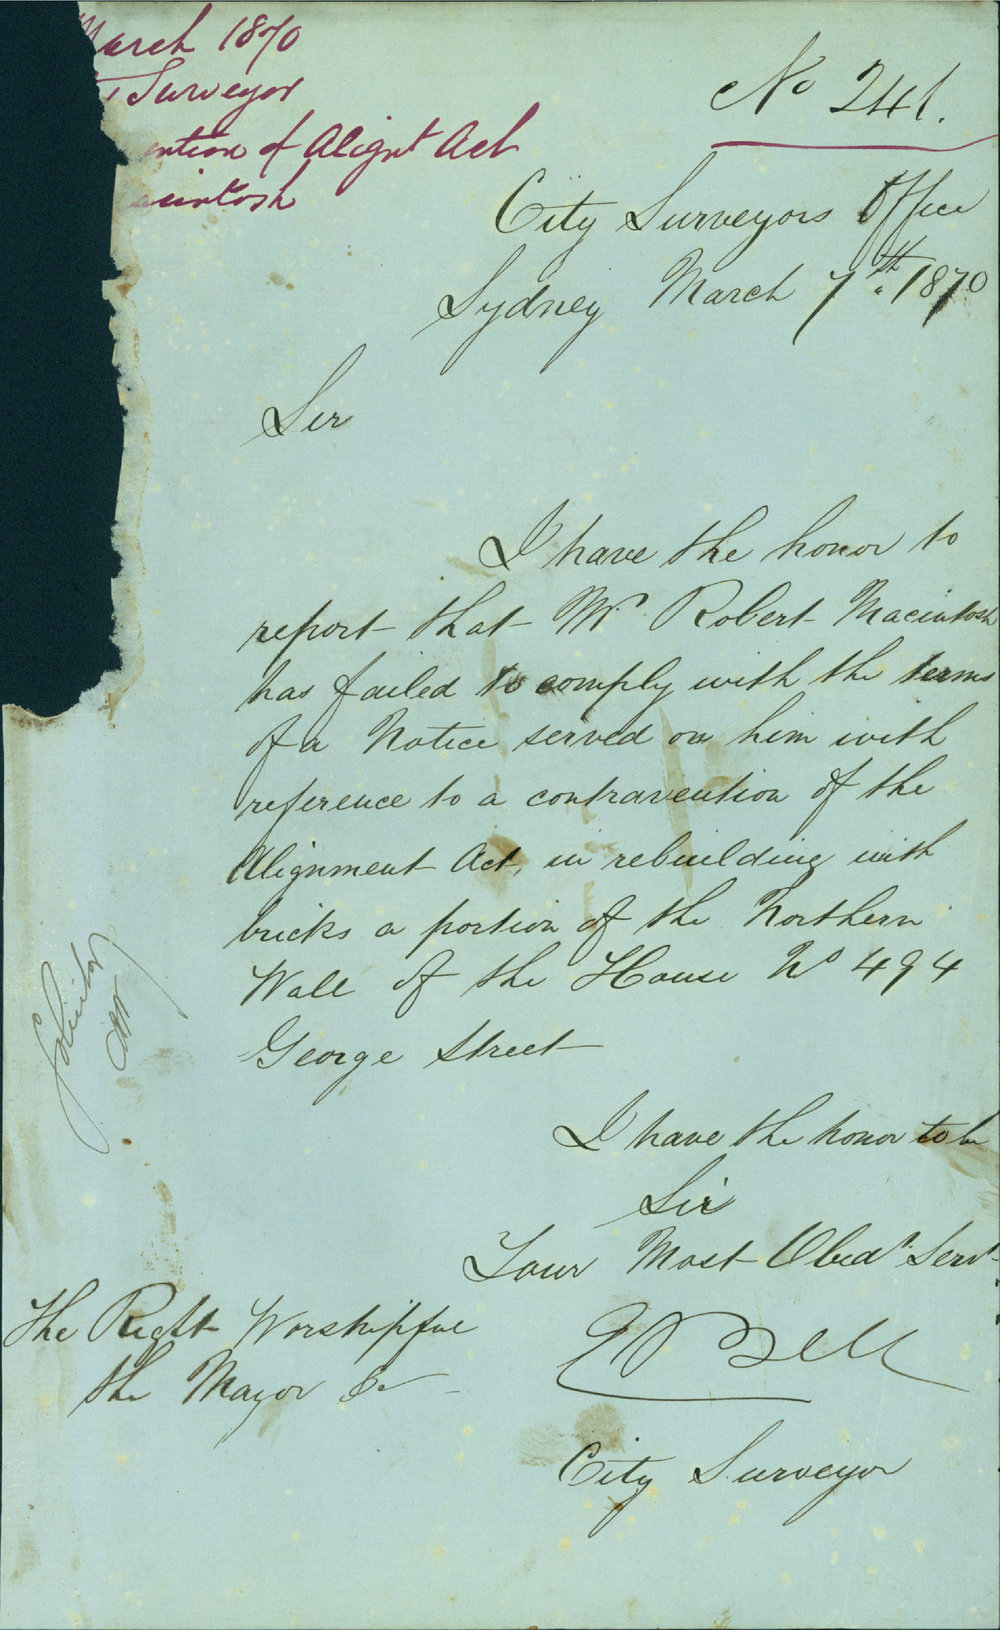 March 1870
Surveyor
ention of Alignt Act
acintosh
No 241.
City Surveyors Office
Sydney March 7th. 1870
Sir
I have the honor to
report that Mr Robert Macintosh
has failed to comply with the terms
of a Notice served on him with
reference to a contravention of the
Alignment Act, in rebuilding with
bricks a portion of the Northern
Wall of the House No 494
George Street
Solicitor
I have the honor to be
Sir
Your Most Obedt Servt
The Right Worshipful
the Mayor &c
E Bell
City Surveyor